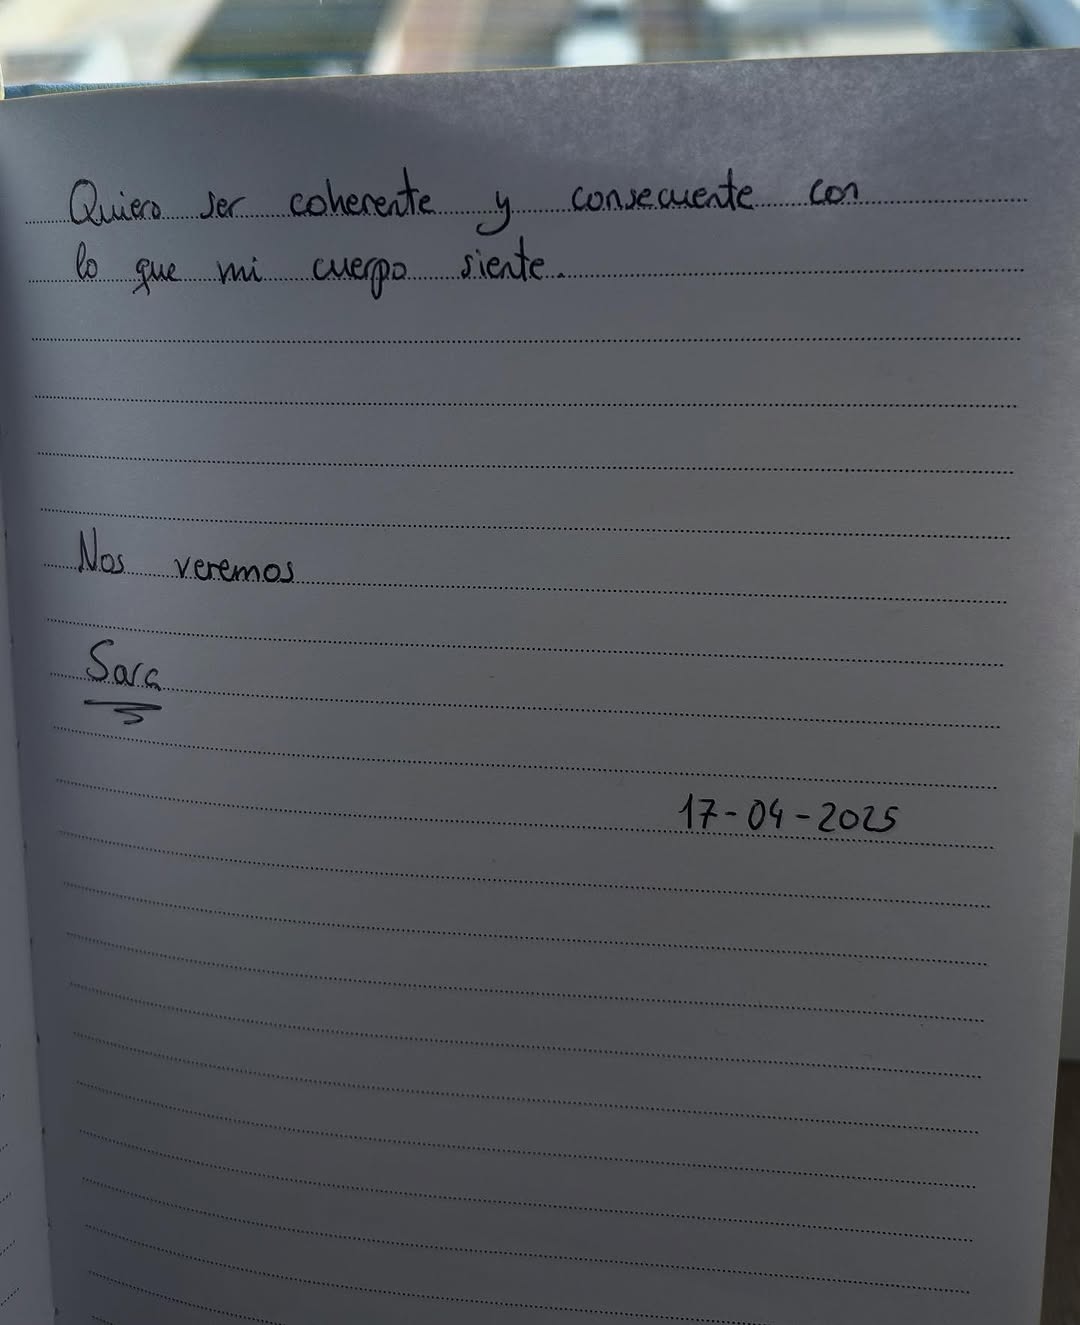 Quiero ser coherente y consecuente con
lo que mi cuerpo siente.
Nos veremos
Sara
17-04-2025